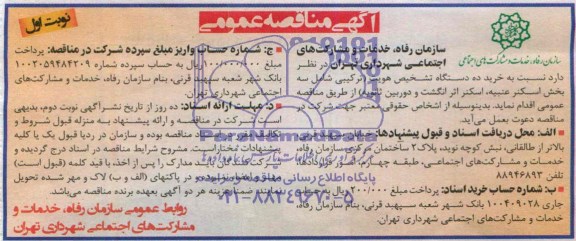 آگهی مناقصه عمومی
نوبت اول
سازمان رفاه، خدمات و مشارکت‌های اجتماعی
سازمان رفاه، خدمات و مشارکت‌های
اجتماعی شهرداری تهران در نظر
دارد نسبت به خرید ده دستگاه تشخیص هویت (ترکیبی شامل سه
بخش اسکنر عنبیه، اسکنر اثر انگشت و دوربین ثابت) از طریق مناقصه
عمومی اقدام نماید. بدینوسیله از اشخاص حقوقی معتبر جهت شرکت در
مناقصه دعوت بعمل می‌آید.
الف: محل دریافت اسناد و قبول پیشنهادها:
بالاتر از طالقانی، نبش کوچه نوید، پلاک ۲ ساختمان مرکزی سازمان رفاه،
خدمات و مشارکت‌های اجتماعی، طبقه چهارم،
تلفن: ۸۸۹۴۶۸۹۳
ب: شماره حساب خرید اسناد: پرداخت مبلغ ۲۰۰/۰۰۰ ریال به حساب
جاری ۱۰۰۴۰۹۰۲۸ بانک شهر شعبه سپهبد قرنی، بنام سازمان رفاه،
خدمات و مشارکت‌های اجتماعی شهرداری تهران.
ج: شماره حساب واریز مبلغ سپرده شرکت در مناقصه: پرداخت
مبلغ ریال به حساب سپرده شماره ۱۰۰۲۰۵۹۴۸۴۲۰۹
بانک شهر شعبه سپهبد قرنی، بنام سازمان رفاه، خدمات و مشارکت‌های
اجتماعی شهرداری تهران.
د: مهلت ارائه اسناد: ده روز از تاریخ نشر آگهی نوبت دوم، بدیهی
است شرکت در مناقصه و ارائه پیشنهاد به منزله قبول شروط و
مناقصه بوده و سازمان در رد یا قبول یک یا کلیه
پیشنهادات مختار است. مشروح شرایط مناقصه در اسناد درج گردیده و
مدارک را پس از اخذ، با قید کلمه (قبول است)
در پاکتهای (الف و ب) لاک و مهر شده تحویل
نمایند. ضمنا هزینه هر دو آگهی بعهده برنده مناقصه می‌باشد.
روابط عمومی سازمان رفاه، خدمات و
مشارکت‌های اجتماعی شهرداری تهران
ParsNamadData
پایگاه اطلاع رسانی مناقصه و مزایده
۰۲۱-۸۸۳۴۹۶۷۰-۵